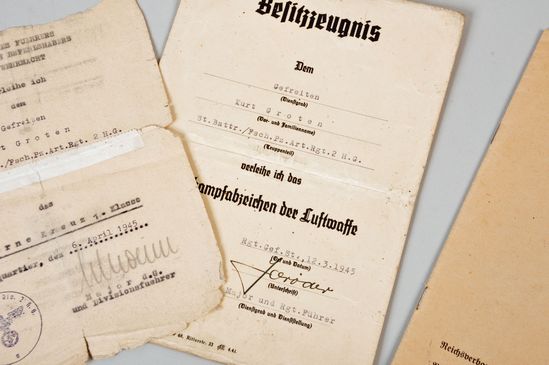 FUEHRERS
WEHRMACHT
leihe ich
dem
Gefreiten
Kurt Groten
./Fsch.Pz.Art.Rgt.2 H.G.
das
Kreuz 1. Klasse
quartier, den 6. April 1945
Major d.R.
und Divisionsfuehrer
Besitzzeugnis
Dem
Gefreiten
(Dienstgrad)
Kurt Groten
(Vor- und Familienname)
St.Battr./Fsch.Pz.Art.Rgt.2 H.G.
(Truppenteil)
verleihe ich das
Kampfabzeichen der Luftwaffe
Rgt.Gef.St., 12.3.1945
(Ort und Datum)
(Unterschrift)
Major und Rgt.Führer
(Dienstgrad und Dienststellung)
Reichsverba